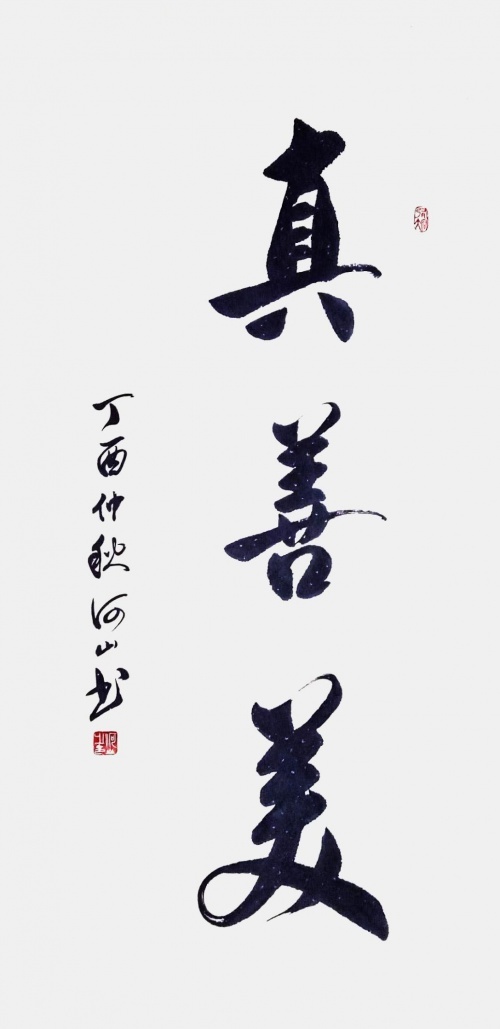 真善美
丁酉仲秋河山书